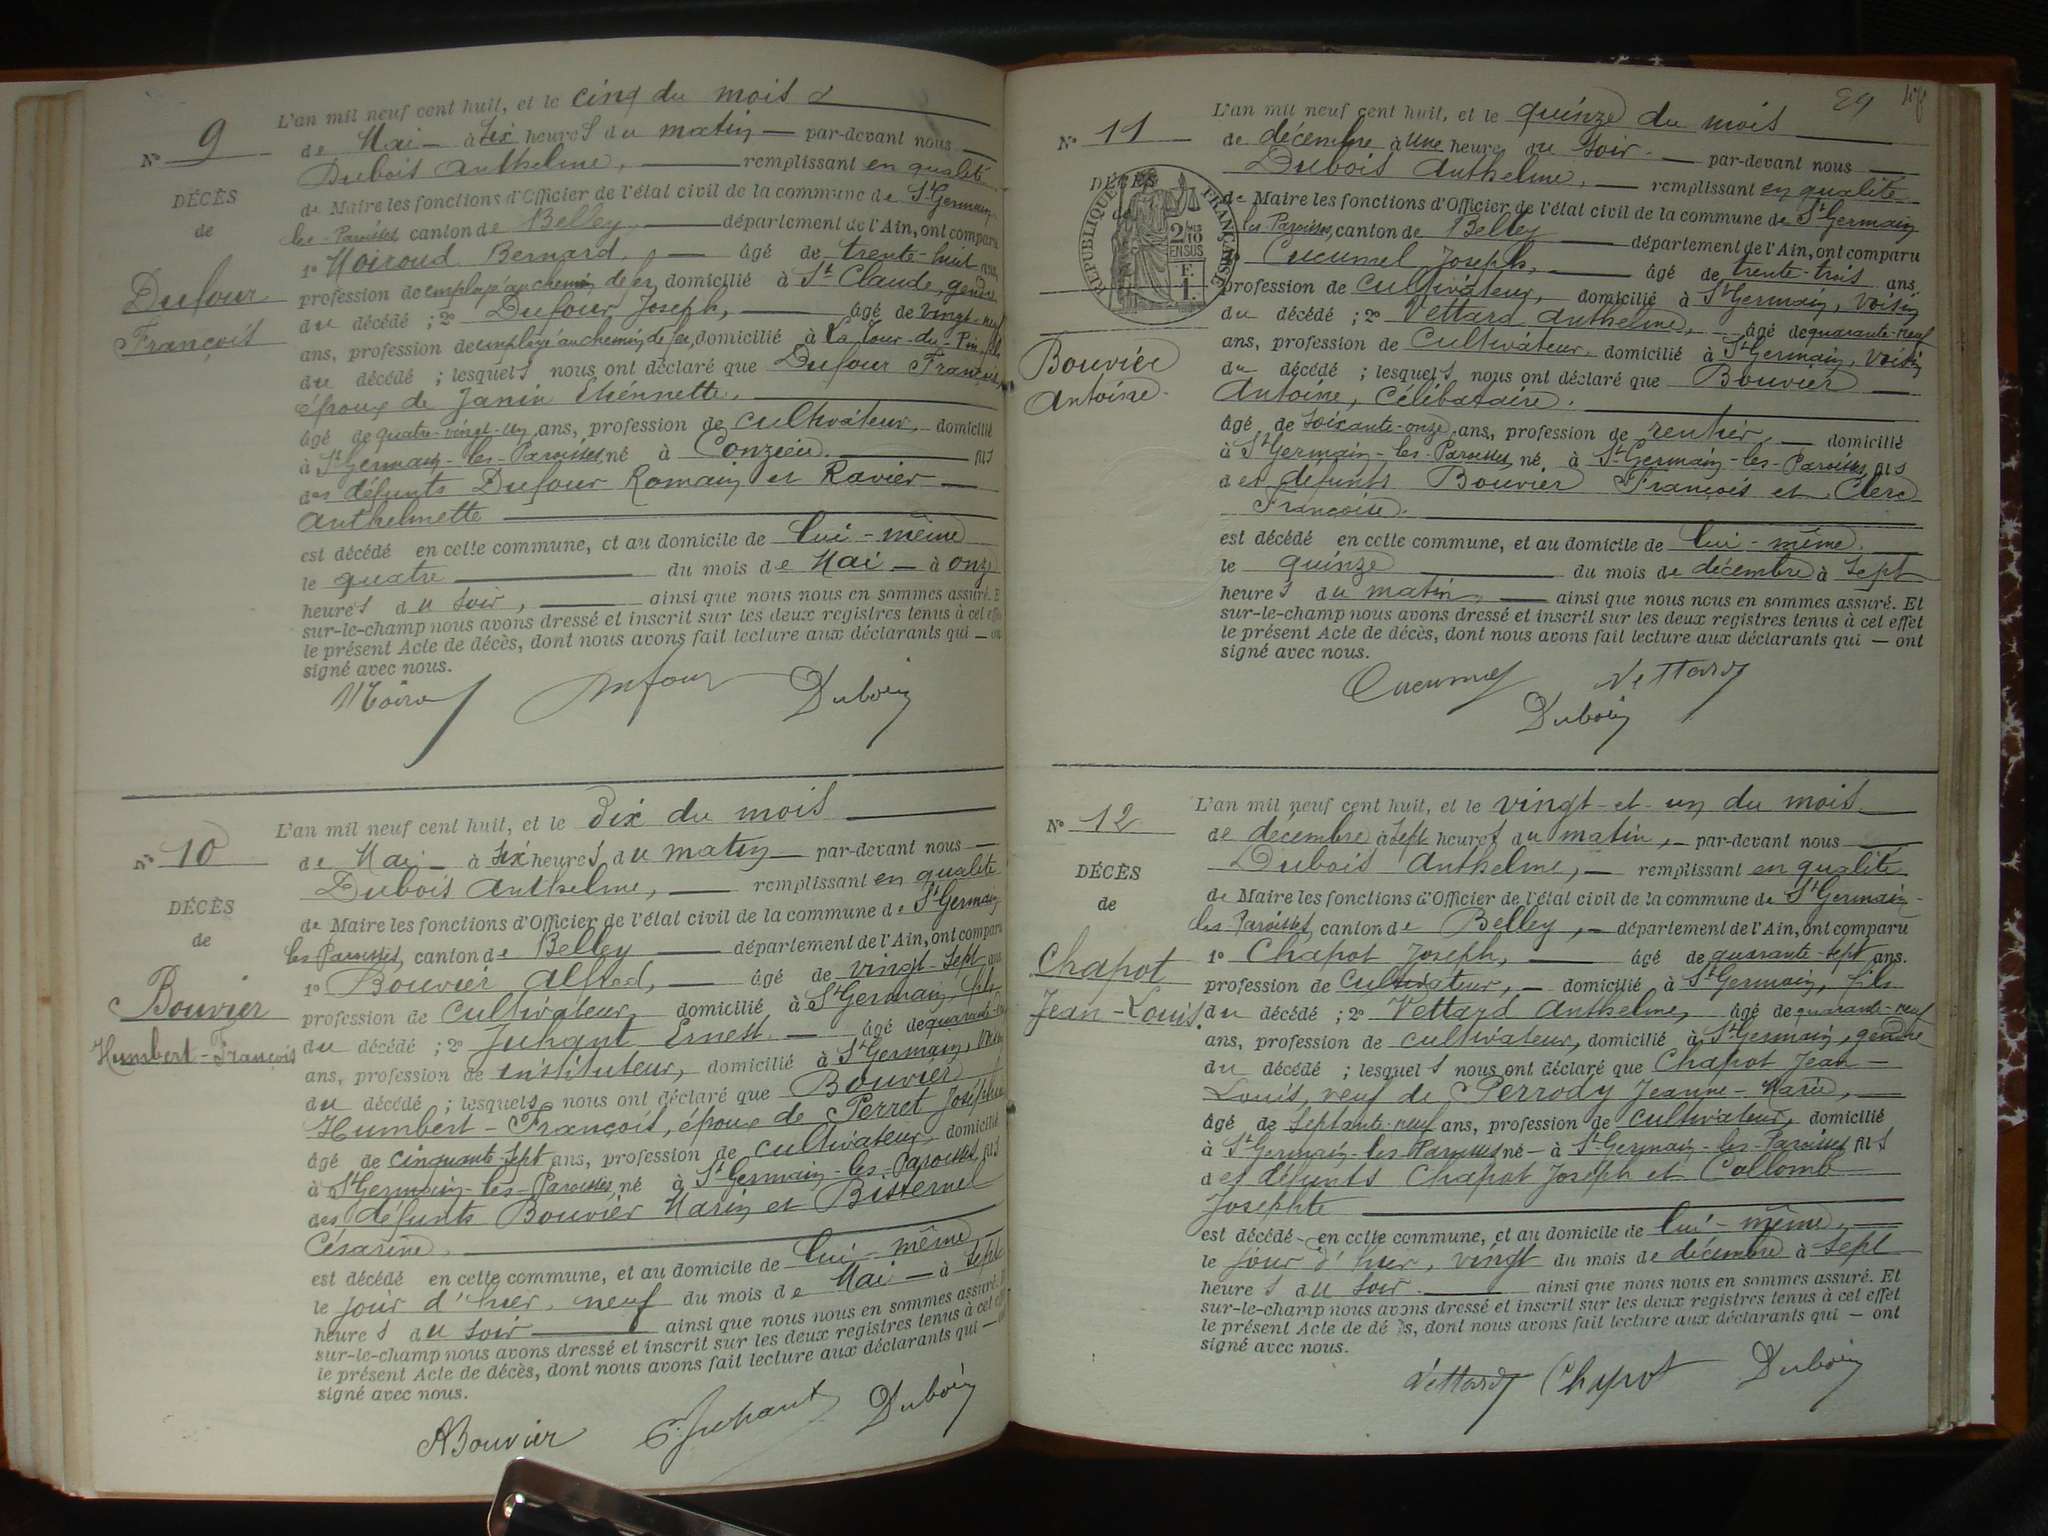 L'an mil neuf cent huit, et le cinq du mois
N° 9
de Mai — à six heures du matin — par-devant nous —
Dubois Anthelme, — remplissant en qualité
DÉCÈS
de Maire les fonctions d'Officier de l'état civil de la commune de St Germain
de
les-Paroisses canton de Belley — département de l'Ain, ont comparu
1° Moiroud Bernard, — âgé de trente-huit ans,
Dufour
François
profession de employé au chemin de fer, domicilié à St Claude, gendre
du décédé ; 2° Dufour Joseph, — âgé de vingt-neuf
ans, profession de employé au chemin de fer, domicilié à La Tour-du-Pin, fils
du décédé ; lesquels nous ont déclaré que Dufour François
époux de Janin Etiennette,
âgé de quatre-vingt-un ans, profession de cultivateur, domicilié
à St Germain-les-Paroisses, né à Conzieu. — fils
des défunts Dufour Romain et Ravier —
Anthelmette
est décédé en cette commune, et au domicile de lui-même
le quatre — du mois de Mai — à onze
heures du soir, — ainsi que nous nous en sommes assuré. E
sur-le-champ nous avons dressé et inscrit sur les deux registres tenus à cet effe
le présent Acte de décès, dont nous avons fait lecture aux déclarants qui — on
signé avec nous.
Dufour Dubois
L'an mil neuf cent huit, et le dix du mois
N° 10
de Mai — à six heures du matin — par-devant nous —
Dubois Anthelme, — remplissant en qualité
DÉCÈS
de Maire les fonctions d'Officier de l'état civil de la commune de St Germain
de
les Paroisses, canton de Belley — département de l'Ain, ont comparu
1° Bouvier Alfred, — âgé de vingt-sept ans
Bouvier
Humbert-François
profession de cultivateur, domicilié à St Germain, fils
du décédé ; 2° Juhant Ernest — âgé de quarante
ans, profession de instituteur, domicilié à St Germain, voisin
du décédé ; lesquels nous ont déclaré que Bouvier
Humbert-François, époux de Perret Joséphine
âgé de cinquante-sept ans, profession de cultivateur, domicilié
à St Germain-les-Paroisses, né à St Germain-les-Paroisses, fils
des défunts Bouvier Marin et Bissernel
Césarine,
est décédé en cette commune, et au domicile de lui-même —
le jour d'hier, neuf du mois de Mai — à sept
heures du soir — ainsi que nous nous en sommes assuré. E
sur-le-champ nous avons dressé et inscrit sur les deux registres tenus à cet effe
le présent Acte de décès, dont nous avons fait lecture aux déclarants qui — on
signé avec nous.
ABouvier E. Juhant Dubois
29
L'an mil neuf cent huit, et le quinze du mois
N° 11
de décembre à une heure du soir. — par-devant nous —
Dubois Anthelme, — remplissant en qualité
DÉCÈS
RÉPUBLIQUE FRANÇAISE
2/10 EN SUS
F. 1.
de Maire les fonctions d'Officier de l'état civil de la commune de St Germain
les Paroisses, canton de Belley — département de l'Ain, ont comparu
Cucumel Joseph, — âgé de trente-trois ans,
profession de cultivateur, domicilié à St Germain, voisin
du décédé ; 2° Vettard Anthelme, — âgé de quarante-neuf
ans, profession de cultivateur, domicilié à St Germain, voisin
Bouvier
Antoine
du décédé ; lesquels nous ont déclaré que Bouvier —
Antoine, célibataire.
âgé de soixante-onze ans, profession de rentier, — domicilié
à St Germain-les-Paroisses, né à St Germain-les-Paroisses, fils
des défunts Bouvier François et Clerc
Françoise.
est décédé en cette commune, et au domicile de lui-même.
le quinze — du mois de décembre à sept
heures du matin, — ainsi que nous nous en sommes assuré. Et
sur-le-champ nous avons dressé et inscrit sur les deux registres tenus à cet effet
le présent Acte de décès, dont nous avons fait lecture aux déclarants qui — ont
signé avec nous.
Cucumel Vettard
Dubois
L'an mil neuf cent huit, et le vingt-et-un du mois
N° 12
de décembre à sept heures du matin, — par-devant nous —
Dubois Anthelme, — remplissant en qualité
DÉCÈS
de Maire les fonctions d'Officier de l'état civil de la commune de St Germain-
de
les-Paroisses, canton de Belley, — département de l'Ain, ont comparu
1° Chapot Joseph, — âgé de quarante-sept ans.
Chapot
Jean-Louis.
profession de cultivateur, — domicilié à St Germain, fils
du décédé ; 2° Vettard Anthelme, âgé de quarante-neuf
ans, profession de cultivateur, domicilié à St Germain, gendre
du décédé ; lesquels nous ont déclaré que Chapot Jean —
Louis, veuf de Perrody Jeanne-Marie, —
âgé de septante-neuf ans, profession de cultivateur, domicilié
à St Germain-les-Paroisses né — à St Germain-les-Paroisses fils
des défunts Chapot Joseph et Collomb
Josephte
est décédé en cette commune, et au domicile de lui-même, —
le jour d'hier, vingt du mois de décembre à sept
heures du soir. — ainsi que nous nous en sommes assuré. Et
sur-le-champ nous avons dressé et inscrit sur les deux registres tenus à cet effet
le présent Acte de décès, dont nous avons fait lecture aux déclarants qui — ont
signé avec nous.
Vettard Chapot Dubois